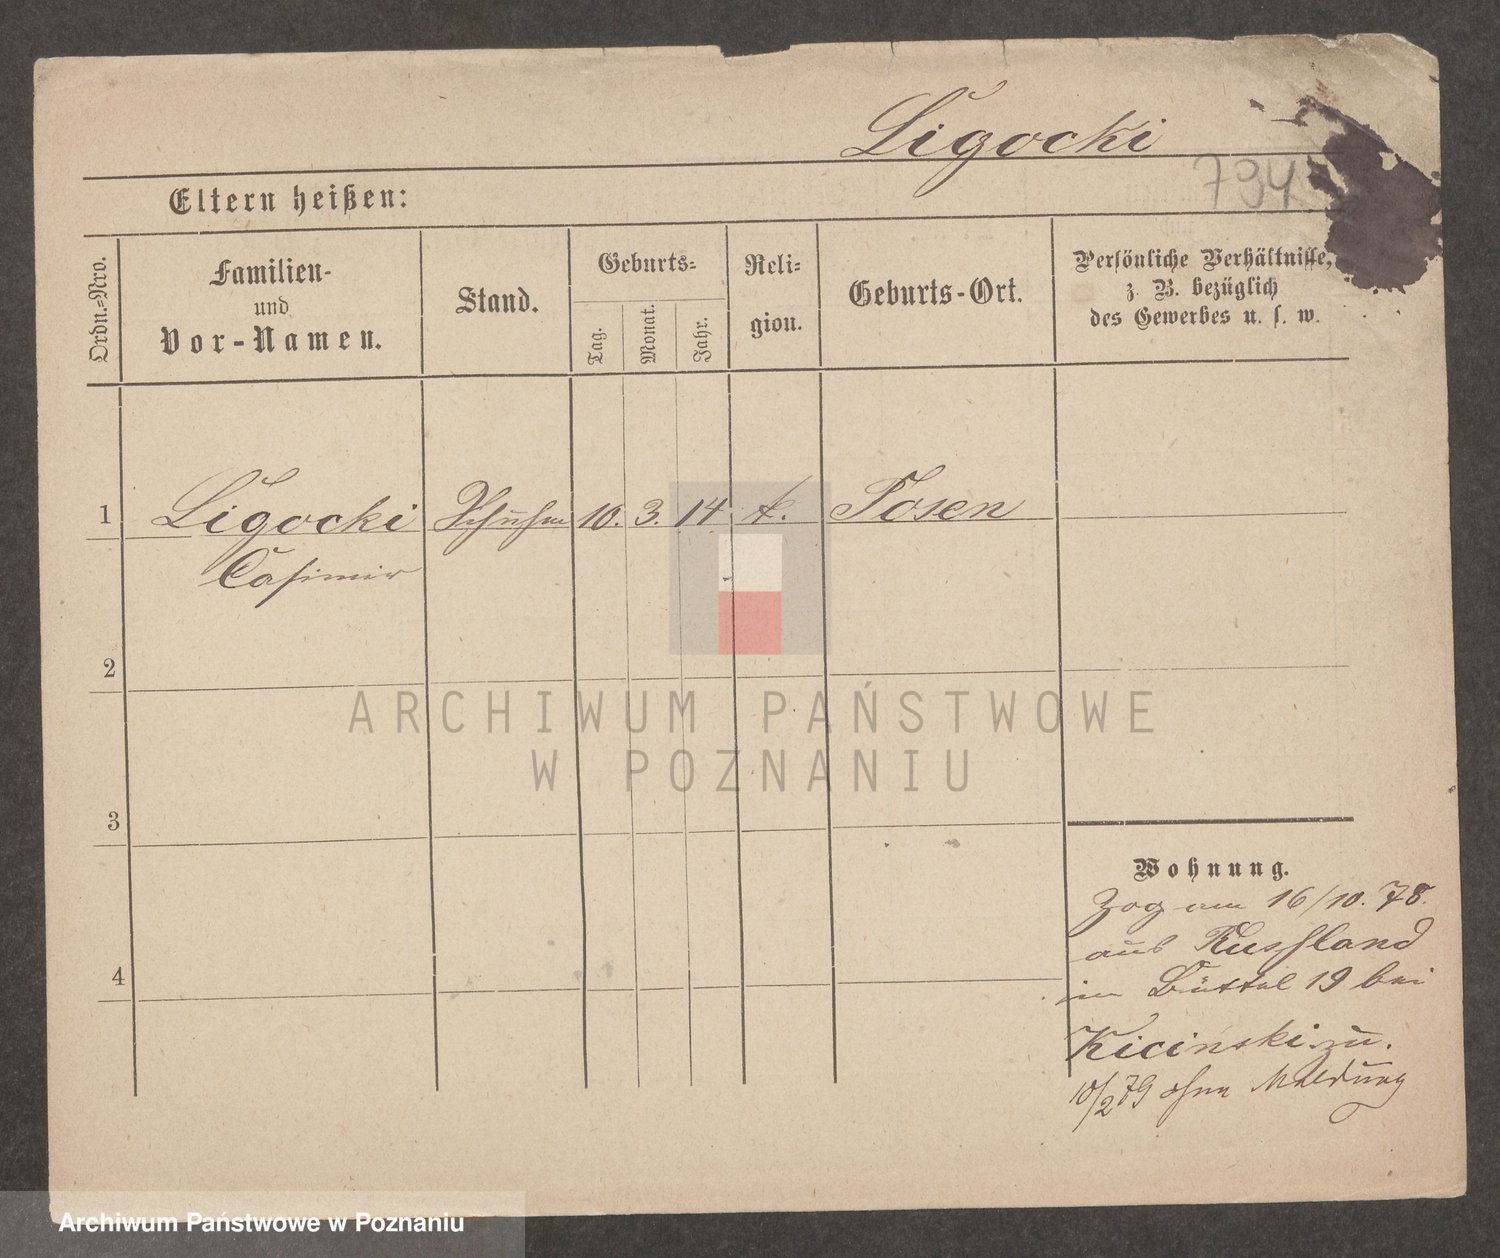 Ligocki
794
Eltern heißen:
Ordn.=Nro.
Familien-
und
Vor-Namen.
Stand.
Geburts=
Tag.
Monat.
Jahr.
Reli=
gion.
Geburts-Ort.
Persönliche Verhältnisse,
z. B. bezüglich
des Gewerbes u. s. w.
1 Ligocki Schuhm 10. 3. 14. k. Posen
Casimir
2
3
4
Wohnung.
Zog am 16/10. 78.
aus Russland
im Büttel 19 bei
Kicinski zu.
10/2 79 ohne Meldung
ARCHIWUM PAŃSTWOWE
W POZNANIU
Archiwum Państwowe w Poznaniu